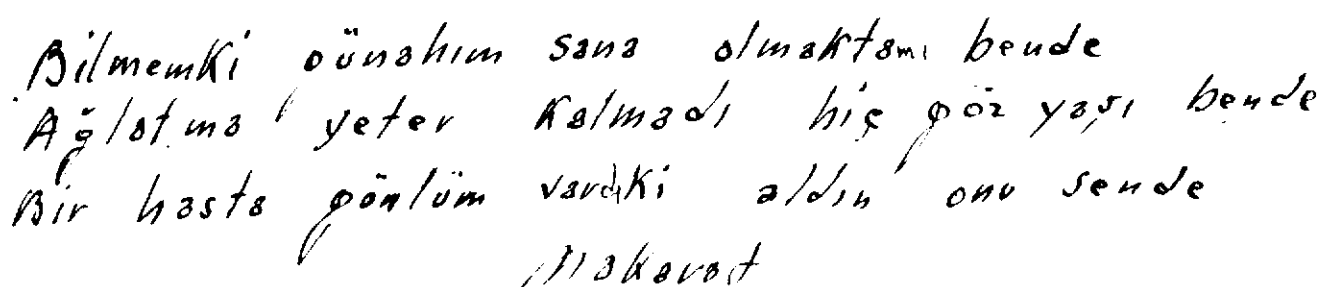 Bilmemki günahım sana olmaktamı bende
Ağlatma yeter Kalmadı hiç göz yaşı bende
Bir hasta gönlüm vardıki aldın onu sende
Nakarat